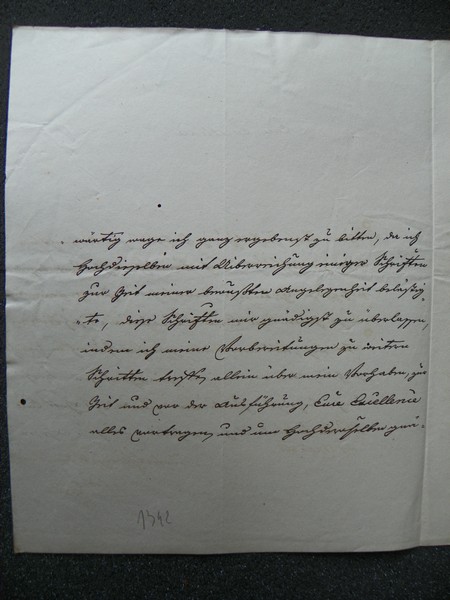 wärtig wage ich ganz ergebenst zu bitten, da ich
Hochdieselben mit Überreichung einiger Schriften
zur Zeit meiner bewußten Angelegenheit belästig-
te, diese Schriften mir gnädigst zu überlassen,
indem ich meine Vorbereitungen zu weitern
Schritten treffe, allein über mein Vorhaben, zur
Zeit und vor der Ausführung, Eure Excellence
alles vortragen, und um Hochderoselben gnä-
1342